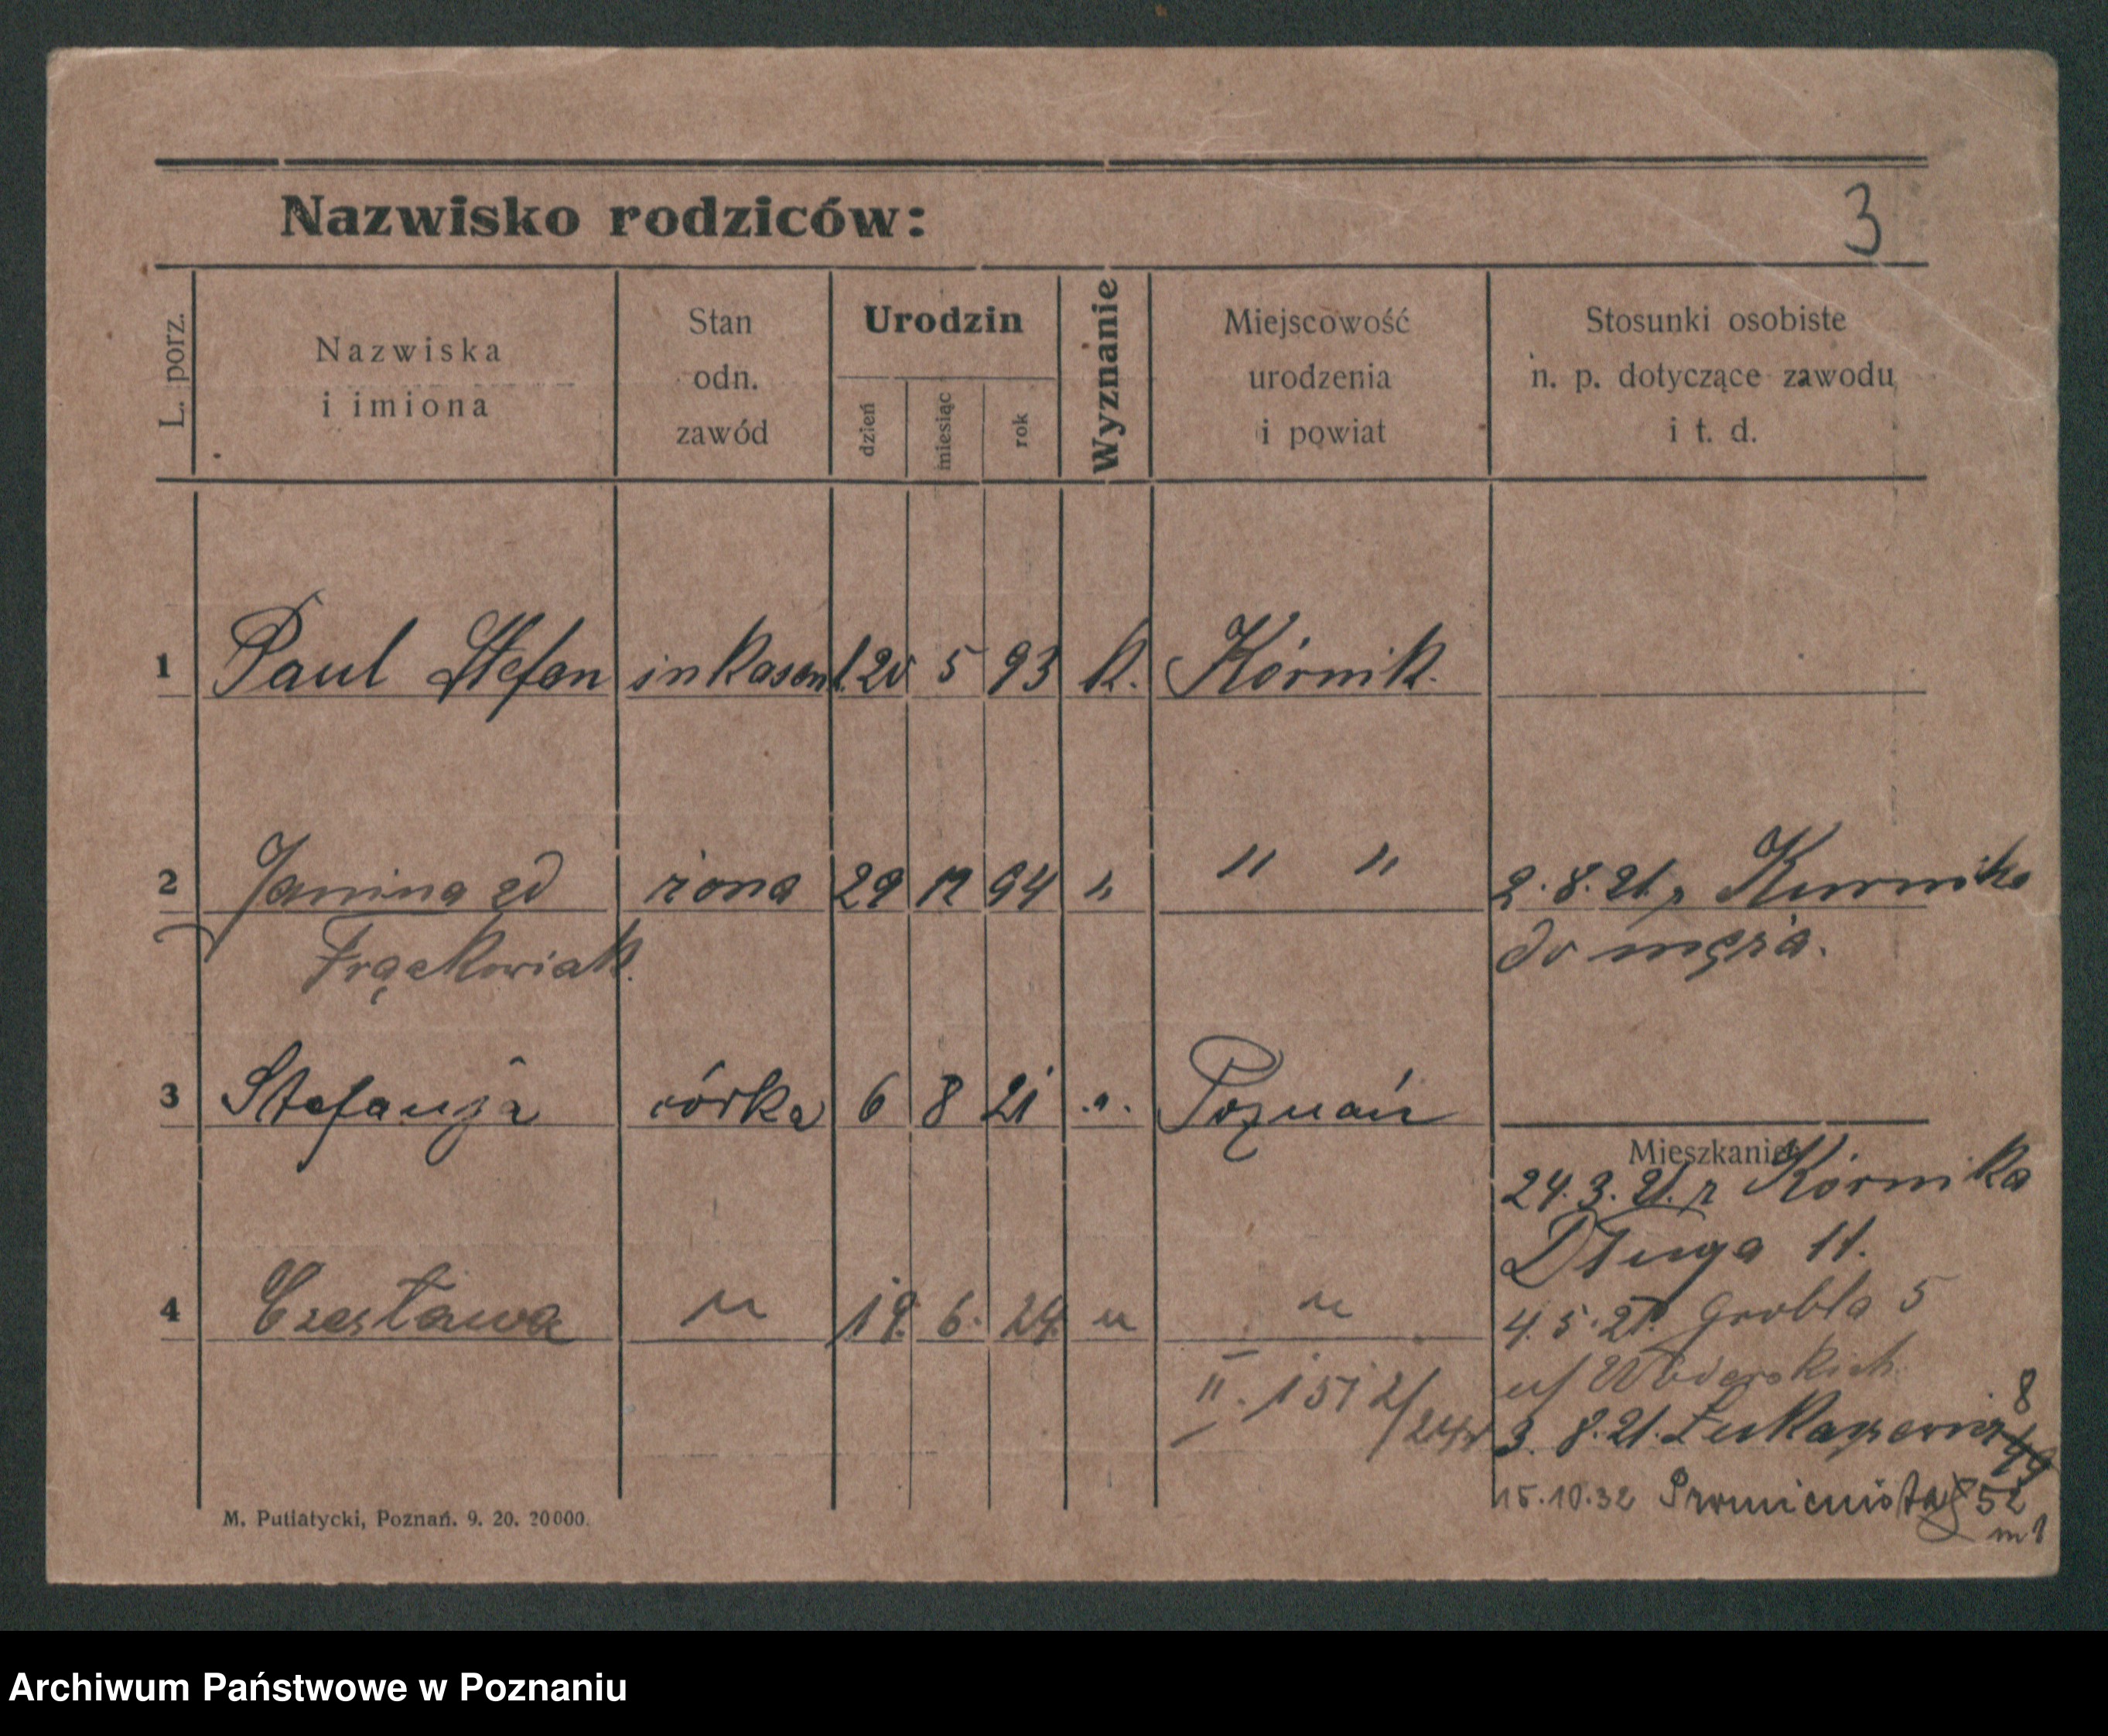 Nazwisko rodziców:
3
L. porz.
Nazwiska
i imiona
Stan
odn.
zawód
Urodzin
dzień
miesiąc
rok
Wyznanie
Miejscowość
urodzenia
i powiat
Stosunki osobiste
n. p. dotyczące zawodu
i t. d.
1 Paul Stefan inkasent. 20 5 93 k. Kórnik.
2 Janina zd żona 29 12 94 " " " 2. 8. 21. z Kurnika
Frąckowiak. do męża.
3 Stefanja córka 6 8 21 " Poznań
Mieszkanie
24. 3. 21. z Kórnika
Długa 11.
4 Czesława " 19. 6. 24. " "
4. 5. 21. Grobla 5
II. 1512/24
3. 8. 21. Łukaszewicza 49 8
15.10.32 52
m 1
M. Putiatycki, Poznań. 9. 20. 20000.
Archiwum Państwowe w Poznaniu